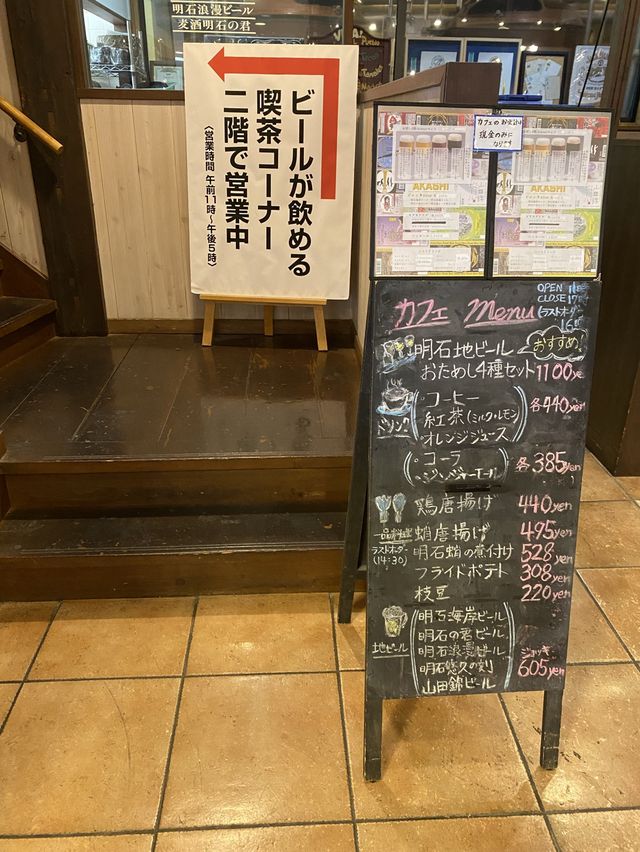 明石浪漫ビール
麦酒明石の君
ビールが飲める
喫茶コーナー
二階で営業中
(営業時間 午前11時~午後5時)
カフェのお支払は
現金のみに
なります
AKASHI
AKASHI
カフェ Menu
OPEN 11時
CLOSE 17時
ラストオーダー
16時
明石地ビール
おすすめ!
おためし4種セット 1100yen
ドリンク
コーヒー
紅茶(ミルク・レモン) 各440yen
オレンジジュース
コーラ
ジンジャーエール 各385yen
鶏唐揚げ 440yen
一品料理
蛸唐揚げ 495yen
ラストオーダー
(14:30)
明石蛸の煮付け 528yen
フライドポテト 308yen
枝豆 220yen
地ビール
明石海岸ビール
明石の君ビール
明石浪漫ビール ジョッキ
明石悠久の刻 605yen
山田錦ビール